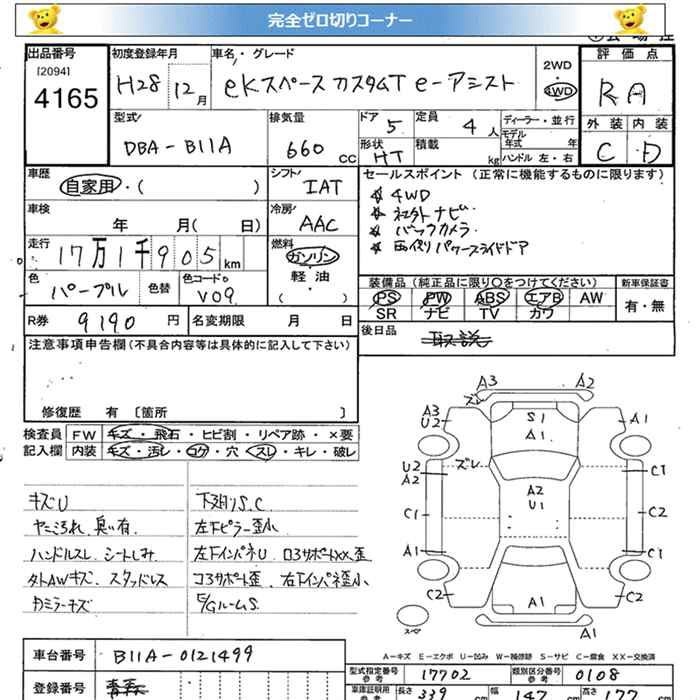 完全ゼロ切りコーナー
出品番号 初度登録年月 車名・グレード 評価点
[2094]
4165 H28 12月 eKスペース カスタムT e-アシスト 2WD 4WD RA
型式 排気量 ドア 5 定員 4人 ディーラー・並行 外装 内装
DBA-B11A 660cc 形状 HT 積載 kg モデル年式 年 C D
ハンドル 左・右
車歴 シフト セールスポイント (正常に機能するものに限ります)
自家用・( ) IAT ★4WD
車検 冷房 ★社外ナビ
年 月( 日) AAC ★バックカメラ
走行 燃料 ★両側パワースライドドア
17万1千905km ガソリン
色 色替 色コードNo 軽・油 装備品 (純正品に限り○をつけてください) 新車保証書
パープル V09 ( ) PS PW ABS エアB AW 有・無
SR ナビ TV カワ
R券 9190円 名変期限 月 日 後日品 取説
注意事項申告欄(不具合内容等は具体的に記入して下さい)
修復歴 有 [箇所 ]
検査員 FW キズ・飛石・ヒビ割・リペア跡・×要
記入欄 内装 キズ・汚レ・コゲ・穴・スレ・キレ・破レ
キズU 下廻りS.C
ヤニ汚れ 臭い有 左下ピラー歪小
ハンドルスレ シートしみ 左下インパネU ロ3サポートXX.歪
外AWキズ スタッドレス コ3サポート歪 右下インパネ歪小
カミラーキズ E/GルームS.
A3 A2
ズレ
A3 U2 S1 A1
A1
U2 A2 ズレ C1
A2
U1
C1 C2
A1 C1
C2 A1 C2
スペア
A1
A-キズ E-エクボ U-凹み W-補修跡 S-サビ C-腐食 XX-交換済
車台番号 B11A-0121499
型式指定番号 参考 17702 類別区分番号 参考 0108
登録番号 青森
車庫証明用 参考 長さ 339 cm 幅 147 cm 高さ 177 cm